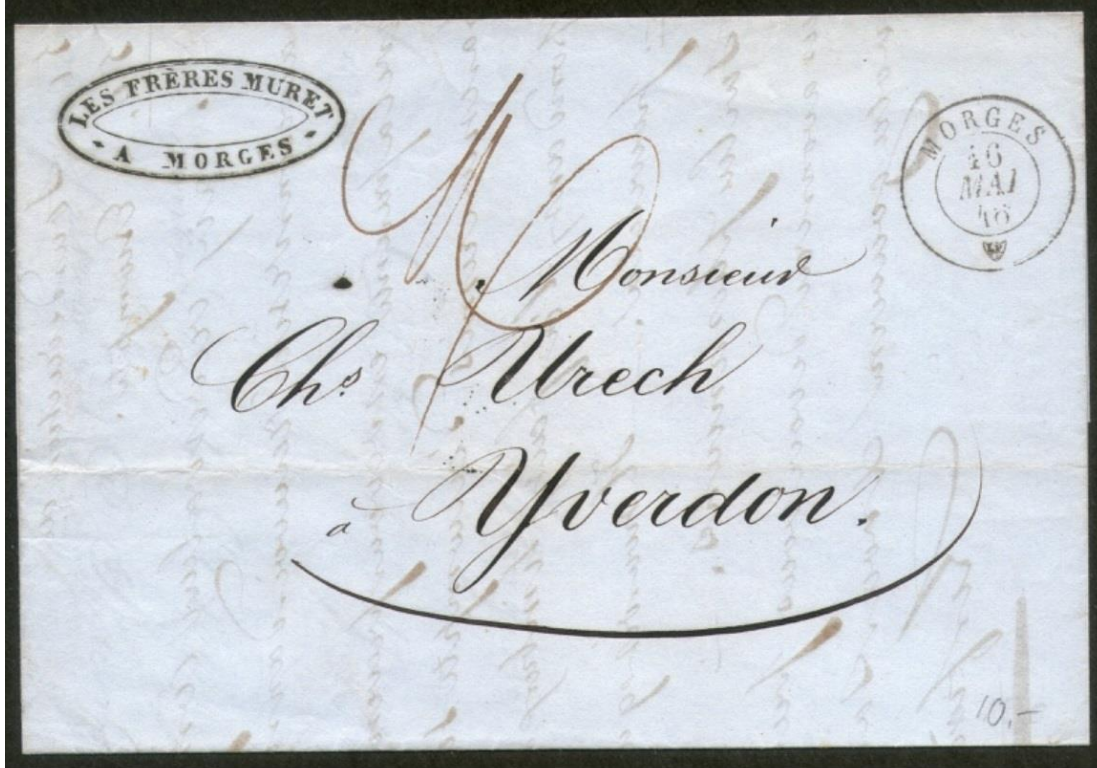 LES FRÈRES MURET
A MORGES
MORGES
16
MAI
46
Monsieur
Chs Urech
a Yverdon.
10.-